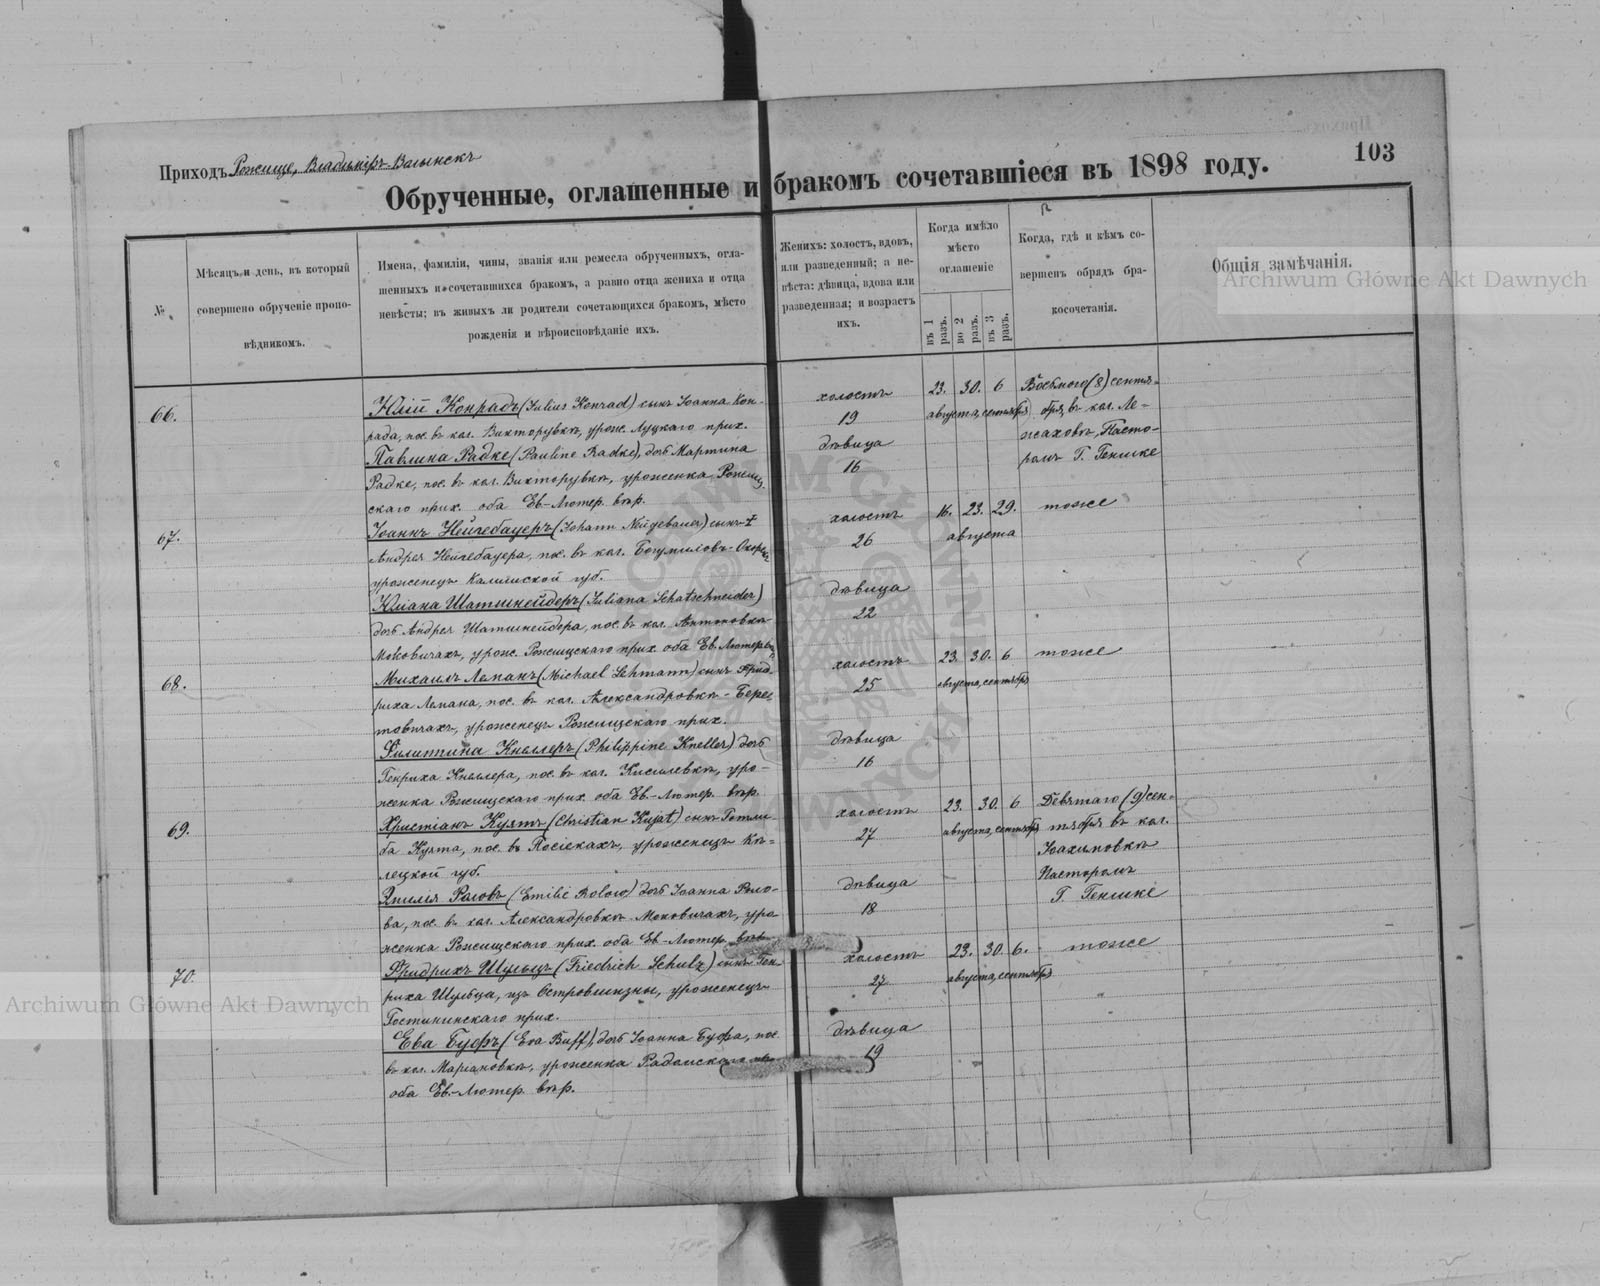 103
Приходъ Рожище, Владиміръ-Волынскъ
Обрученные, оглашенные и бракомъ сочетавшіеся въ 1898 году.
№
Мѣсяцъ и день, въ который совершено обрученіе проповѣдникомъ.
Имена, фамиліи, чины, званія или ремесла обрученныхъ, оглашенныхъ и сочетавшихся бракомъ, а равно отца жениха и отца невѣсты; въ живыхъ ли родители сочетающихся бракомъ, мѣсто рожденія и вѣроисповѣданіе ихъ.
Женихъ: холостъ, вдовъ, или разведенный; а невѣста: дѣвица, вдова или разведенная; и возрастъ ихъ.
Когда имѣло мѣсто оглашеніе
въ 1 разъ.
во 2 разъ.
въ 3 разъ.
Когда, гдѣ и кѣмъ совершенъ обрядъ бракосочетанія.
Общія замѣчанія.
Archiwum Główne Akt Dawnych
66.
Юлій Конрадъ (Julius Konrad) сынъ Іоанна Кон-
рада, пос. въ кол. Викторувкѣ, урож. Луцкаго прих.
Павлина Радке (Pauline Radke), дочь Мартина
Радке, пос. въ кол. Викторувкѣ, уроженка Рожищ
скаго прих. оба Ев-Лютер. вѣр.
холостъ
19
дѣвица
16
23. 30. 6
августа, сентября
Восьмого (8) сентя-
бря, въ кол. Ле-
жаховѣ, Пасто-
ромъ Г. Геншке
67.
Іоаннъ Нейгебауеръ (Johann Neugebauer) сынъ †
Андрея Нейгебауера, пос. въ кол. Богумиловъ-
уроженецъ Калишской губ.
Юліана Шатшнейдеръ (Juliana Schatschneider)
дочь Андрея Шатшнейдера, пос. въ кол. Антоновкѣ
Моковичахъ, урож. Рожищскаго прих. оба Ев. Лютер. вѣр.
холостъ
26
дѣвица
22
16. 23. 29.
августа
тоже
68.
Михаилъ Леманъ (Michael Lehmann) сынъ Фрид-
риха Лемана, пос. въ кол. Александровкѣ-Бере-
товичахъ, уроженецъ Рожищскаго прих.
Филиппина Кнеллеръ (Philippine Kneller) дочь
Генриха Кнеллера, пос. въ кол. Киселевкѣ, уро-
женка Рожищскаго прих. оба Ев.-Лютер. вѣр.
холостъ
25
дѣвица
16
23. 30. 6
августа, сентября
тоже
69.
Христіанъ Куятъ (Christian Kujat) сынъ Готли-
ба Куята, пос. въ Посіекахъ, уроженецъ Кѣ-
лецкой губ.
Эмилія Роловъ (Emilie Rolow) дочь Іоанна Роло-
ва, пос. въ кол. Александровкѣ Моковичахъ, уро-
женка Рожищскаго прих. оба Ев-Лютер. вѣр.
холостъ
27
дѣвица
18
23. 30. 6
августа, сентября
Девятаго (9) сен-
тября въ кол.
Іоахимовкѣ
Пасторомъ
Г. Геншке
70.
Фридрихъ Шульцъ (Friedrich Schulz) сынъ Ген-
риха Шульца, изъ Островшизны, уроженецъ
Гостининскаго прих.
Ева Буфъ (Eva Buff), дочь Іоанна Буфа, пос.
въ кол. Маріановкѣ, уроженка Радомскаго
оба Ев.-Лютер. вѣр.
холостъ
27
дѣвица
19
23. 30. 6.
августа, сентября
тоже
Archiwum Główne Akt Dawnych